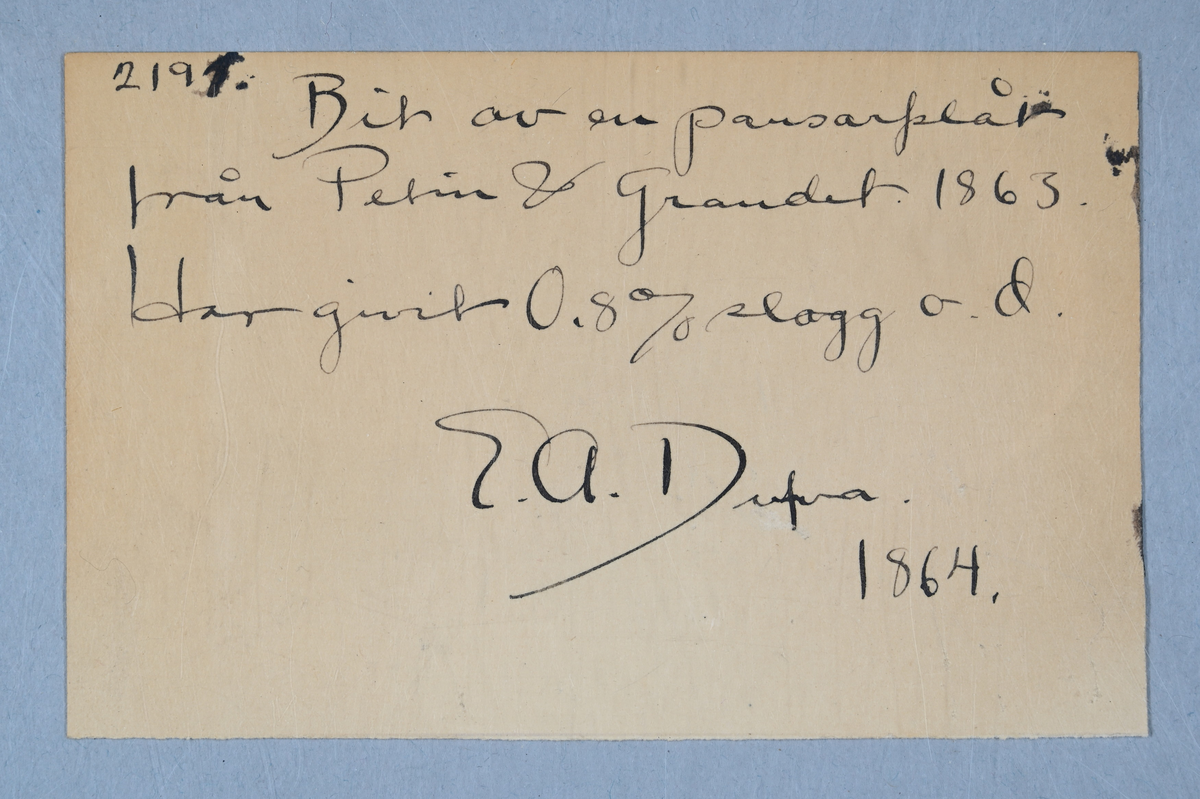 2191.
Bit av en pansarplåt
från Petin & Graudet. 1863.
Har givit 0.8% slagg o. d.
E. A. Dufva.
1864.